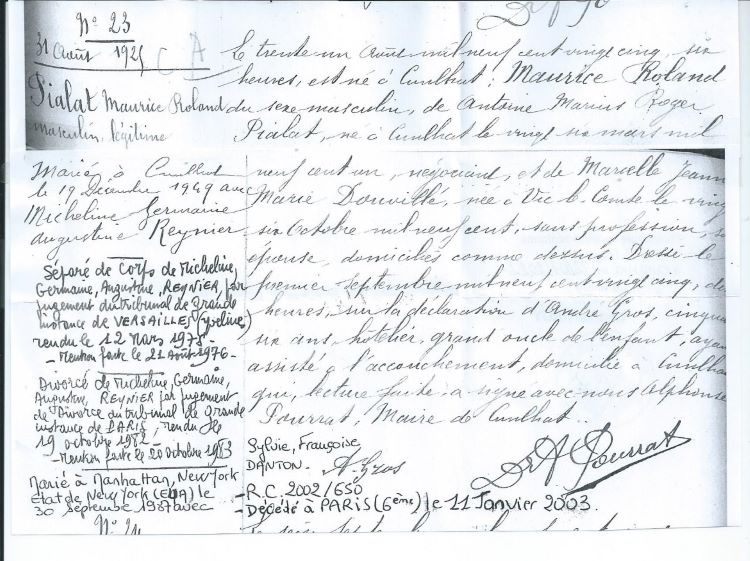 N° 23
31 Août 1925
C A
Pialat Maurice Roland
masculin légitime
Marié à Cunlhat
le 19 Décembre 1949 avec
Micheline Germaine
Augustine Reynier
Séparé de Corps de Micheline,
Germaine, Augustine, REYNIER, par
jugement du tribunal de grande
instance de VERSAILLES (Yvelines)
rendu le 12 Mars 1975 -
- Mention faite le 21 Août 1976 -
Divorcé de Micheline, Germaine,
Augustine, REYNIER par jugement
de Divorce du tribunal de grande
instance de PARIS, rendu le
19 octobre 1982 -
- Mention faite le 20 octobre 1983
Marié à Manhattan, New York
Etat de New York (EUA) le
30 septembre 1987 avec
Le trente un Août mil neuf cent vingt cinq, six
heures, est né à Cunlhat : Maurice Roland
du sexe masculin, de Antoine Marius Roger
Pialat, né à Cunlhat le vingt six mars mil
neuf cent un, négociant, et de Marcelle Jeann
Marie Douvillé, née à Vic le Comte le ving
six Octobre mil neuf cent, sans profession, s
épouse, domiciliés comme dessus. Dressé le
premier septembre mil neuf cent vingt cinq, di
heures, sur la déclaration d'André Gros, cinqua
six ans, hôtelier, grand oncle de l'enfant, aya
assisté à l'accouchement, domicilié à Cunlha
qui, lecture faite, a signé avec nous Alphonse
Pourrat, Maire de Cunlhat.
Sylvie, Françoise
DANTON.
A. Gros
Dr A Pourrat
- R.C. 2002/650
- Décédé à PARIS (6ème) le 11 Janvier 2003.
N° 24